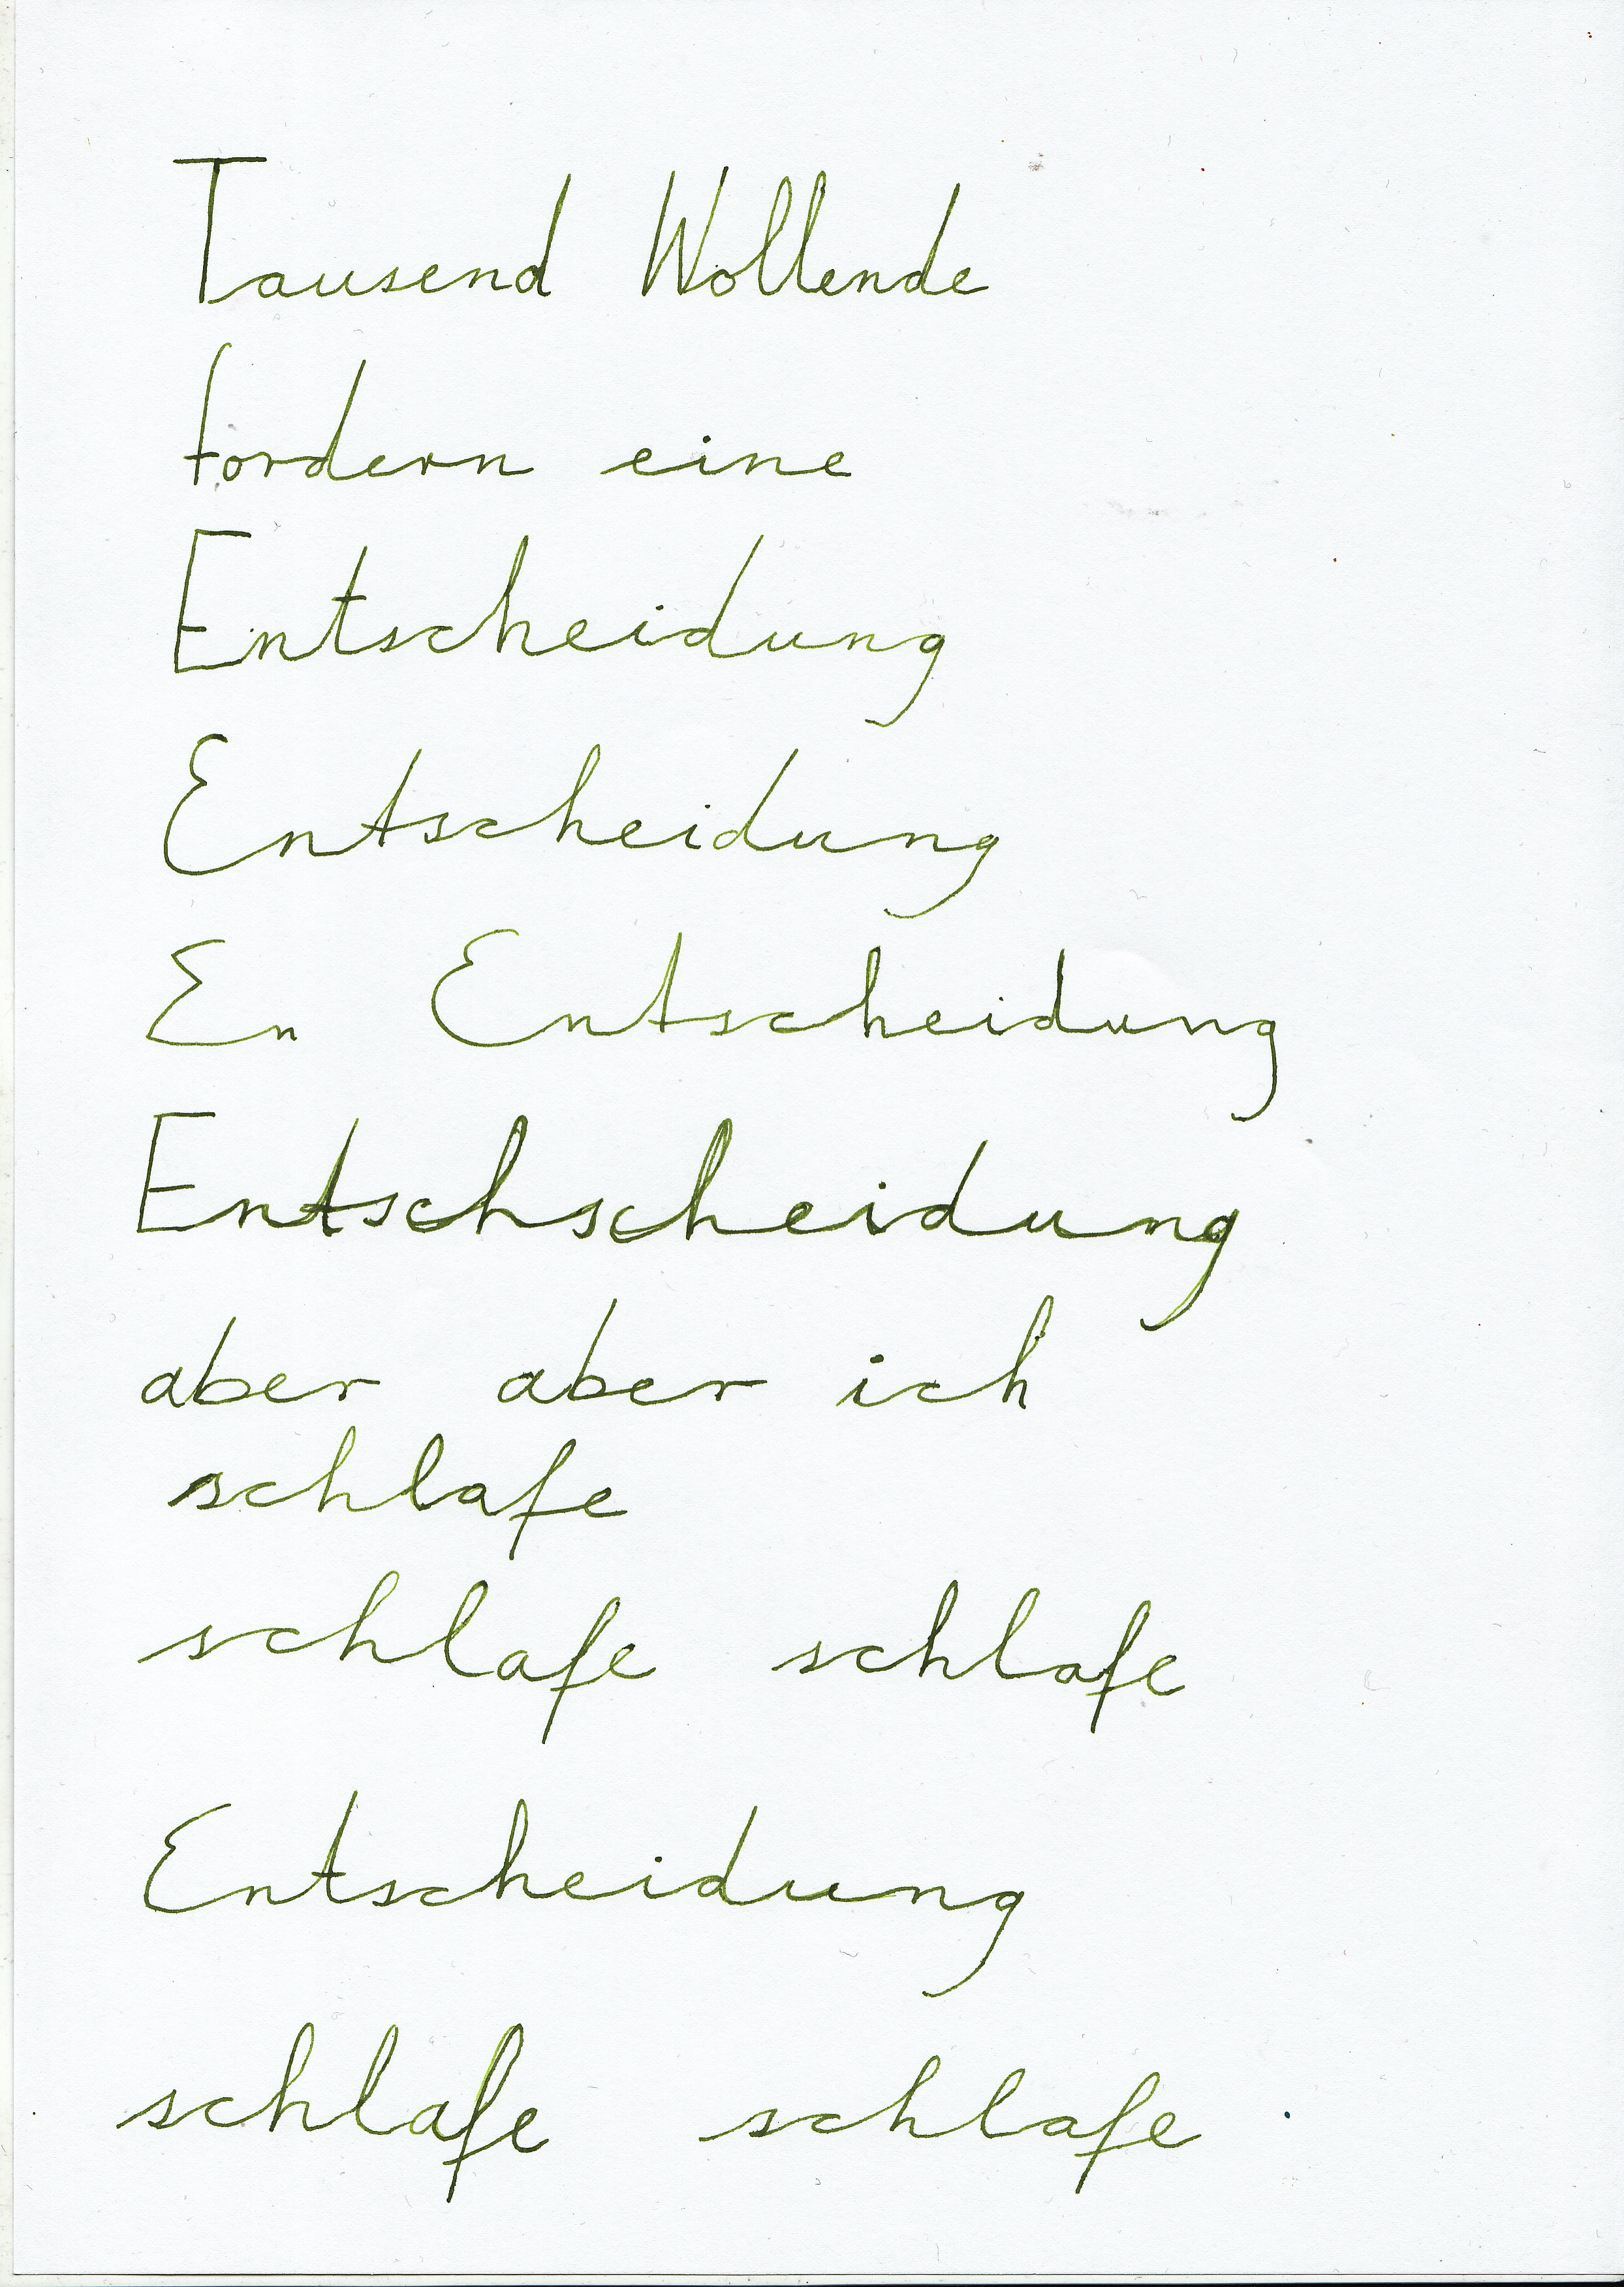 Tausend Wollende
fordern eine
Entscheidung
Entscheidung
En Entscheidung
Entschscheidung
aber aber ich
schlafe
schlafe schlafe
Entscheidung
schlafe schlafe